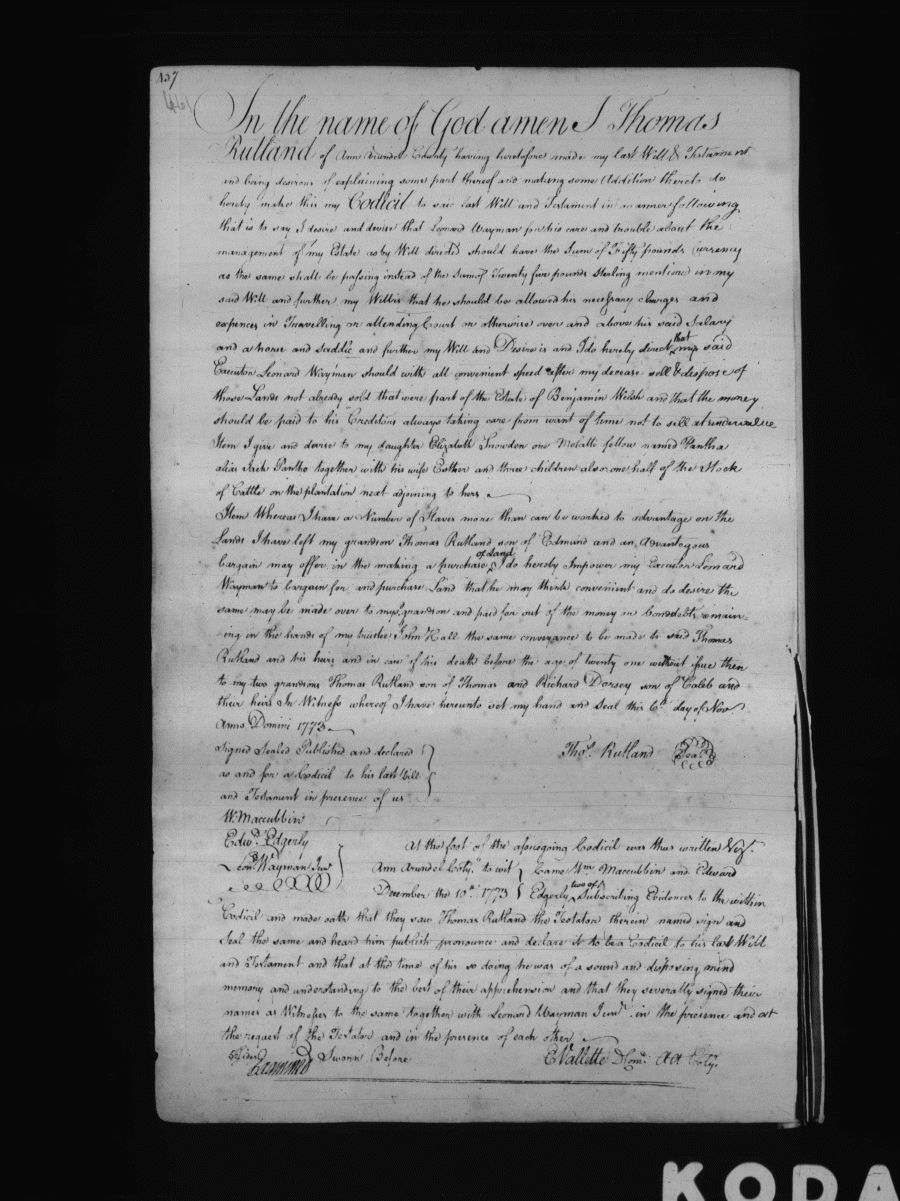 157
461
In the name of God amen I Thomas
Rutland of Ann Arundel County having heretofore made my last Will & Testament
and being desirous of explaining some part thereof and making some Addition thereto do
hereby make this my Codicil to said last Will and Testament in manner following
that is to say I desire and devise that Leonard Wayman for his care and trouble about the
management of my Estate as by Will directed should have the Sum of Fifty pounds Currency
as the same shall be passing instead of the Sum of Twenty five pounds Sterling mentioned in my
said Will and further my Will is that he should be allowed his necessary charges and
expences in Travelling or attending Court or otherwise over and above his said Salary
and a horse and Saddle and further my Will and Desire is and I do hereby direct that my said
Executor Leonard Wayman should with all convenient speed after my decease sell & dispose of
those Lands not already sold that were part of the Estate of Benjamin Welsh and that the money
should be paid to his Creditors always taking care from want of time not to sell at undervalue
Item I give and devise to my daughter Elizabeth Snowden one Molatto fellow named Pantha
alias Jack Pantho together with his wife Esther and three children also one half of the Stock
of Cattle on the plantation next adjoining to hers
Item Whereas I have a Number of Slaves more than can be worked to advantage on the
Lands I have left my grandson Thomas Rutland son of Edmund and an Advantageous
bargain may offer in the making a purchase of Land I do hereby Impower my Executor Leonard
Wayman to bargain for and purchase Land that he may think convenient and do desire the
same may be made over to my sd grandson and paid for out of the money or bonddebts remain
ing in the hands of my trustee John Hall the same conveyance to be made to said Thomas
Rutland and his heirs and in case of his death before the age of twenty one without issue then
to my two grandsons Thomas Rutland son of Thomas and Richard Dorsey son of Caleb and
their heirs In Witness whereof I have hereunto set my hand and Seal this 6th day of Novr
Anno Domini 1773
Signed Sealed Published and declared
Thos Rutland Seal
as and for a Codicil to his last Will
and Testament in presence of us
W. Maccubbin
Edwd Edgerly
Leond Wayman Junr
At the foot of the aforegoing Codicil was thus written Viz.
Ann Arundel Coty. to wit Came Wm Maccubbin and Edward
December the 10th 1773 Edgerly two of Subscribing Evidences to the within
Codicil and made oath that they saw Thomas Rutland the Testator therein named sign and
Seal the same and heard him publish pronounce and declare it to be a Codicil to his last Will
and Testament and that at the time of his so doing he was of a sound and disposing mind
memory and understanding to the best of their apprehension and that they severally signed their
names as Witnesses to the same together with Leonard Wayman Junr. in the presence and at
the request of the Testator and in the presence of each other
Examined Sworn Before
E Vallette D Comy. AA Coty.
KODA